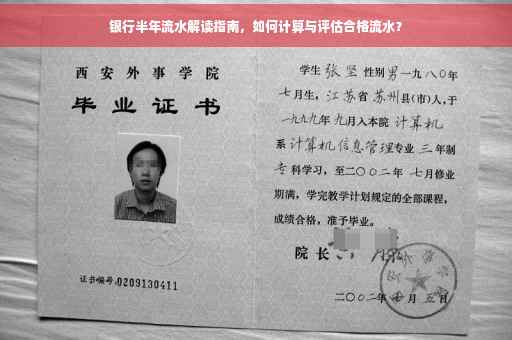 银行半年流水解读指南，如何计算与评估合格流水？
西安外事学院
毕业证书
证书编号:0209130411
学生 张坚 性别男一九八〇年
七月生，江苏省苏州县(市)人,于
一九九九年九月入本院计算机
系计算机信息管理专业三年制
专科学习，至二〇〇二年七月修业
期满，学完教学计划规定的全部课程，
成绩合格，准予毕业。
院长
二〇〇二年七月五日